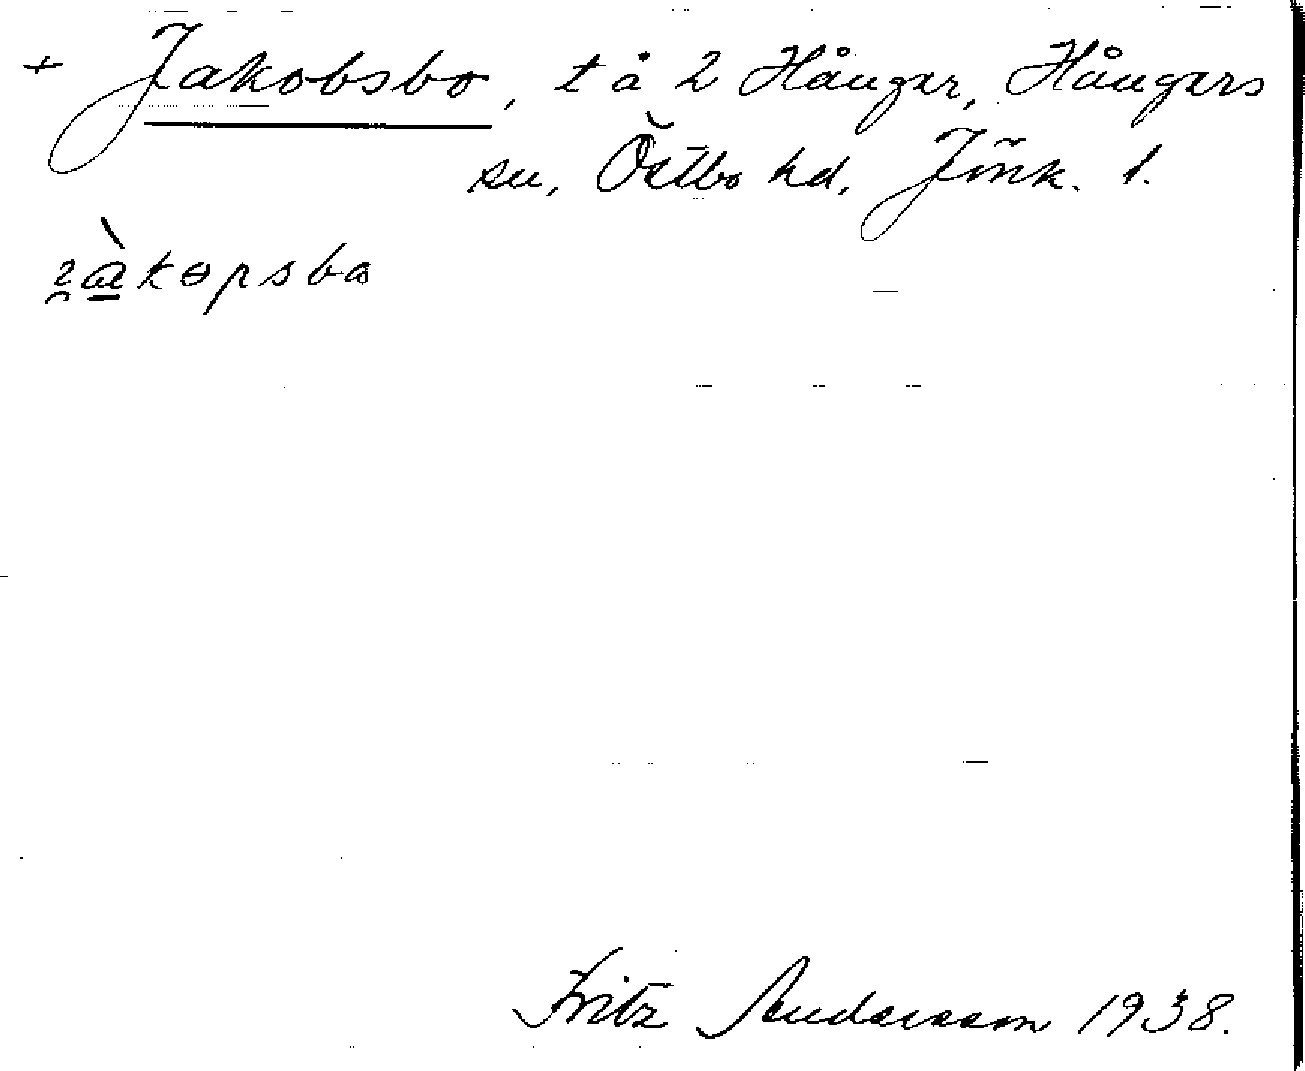 + Jakobsbo, t å 2 Hånger, Hångers
sn, Östbo hd, Jönk. l.
Fritz Andersson 1938.